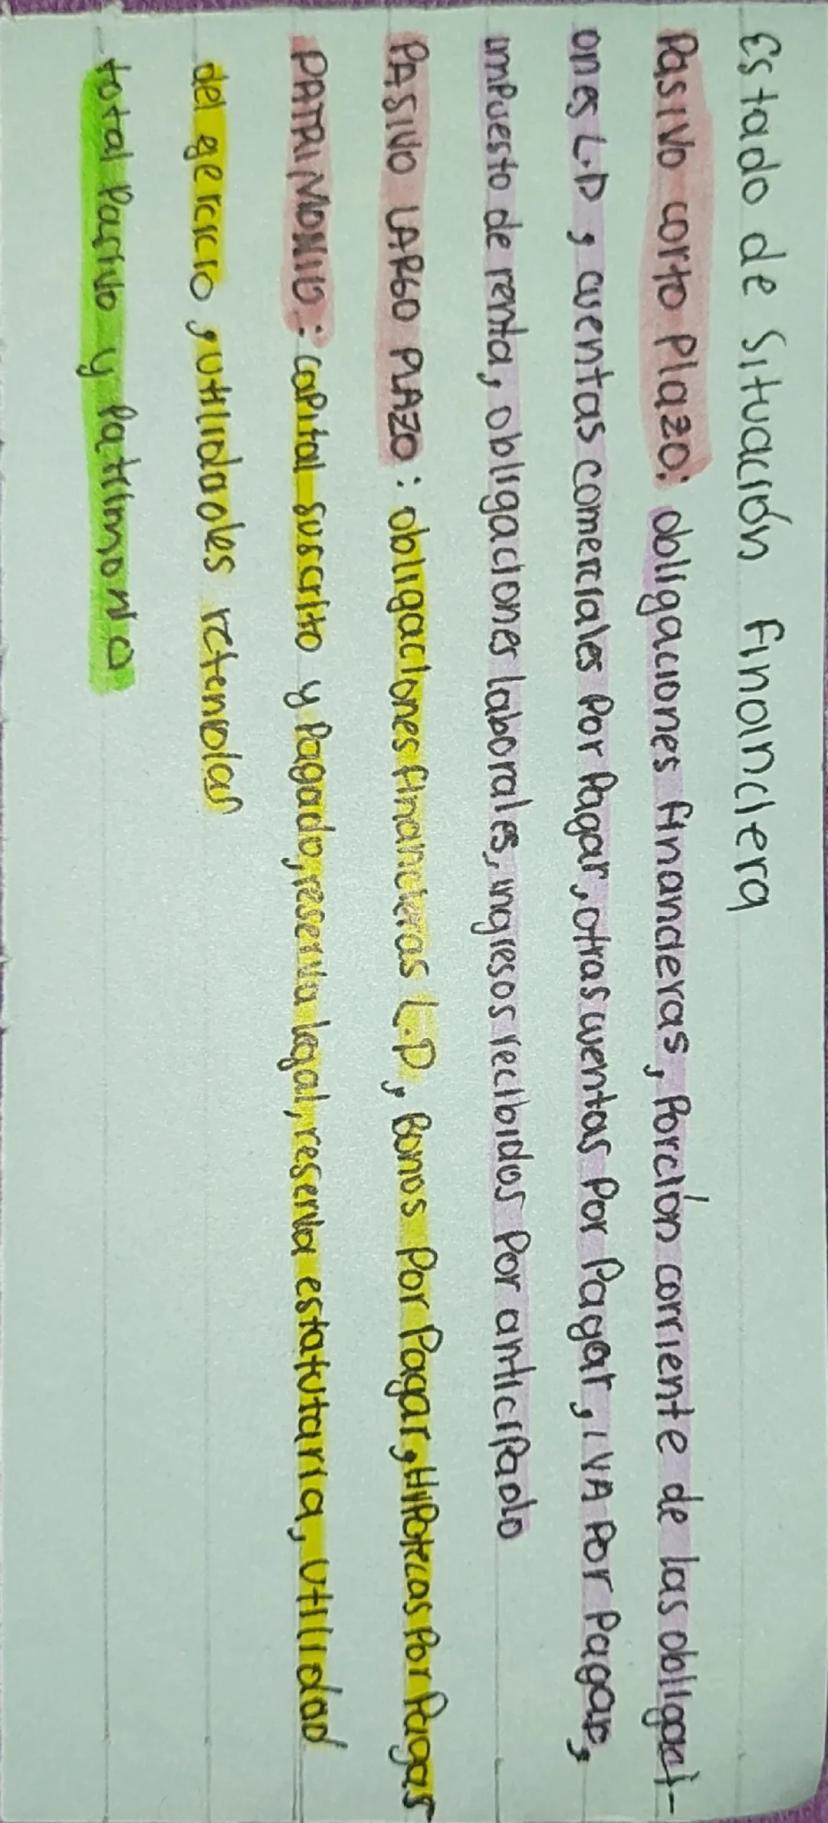 Estado de situación financiera
Pasivo corto plazo: obligaciones financieras, Porción corriente de las obligaci-
ones L.P, cuentas comerciales Por Pagar, otras cuentas Por Pagar, IVA Por Pagar,
impuesto de renta, obligaciones laborales, ingresos recibidos Por anticipado
PASIVO LARGO PLAZO: obligaciones financieras L.P, Bonos Por Pagar, Hipotecas Por Pagar
PATRIMONIO: capital suscrito y Pagado, reserva legal, reserva estatutaria, utilidad
del ejercicio, utilidades retenidas
total Pasivo y Patrimonio